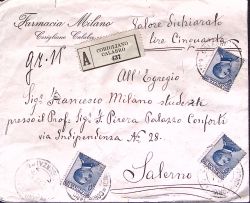 Farmacia Milano
Corigliano Calabro
Valore Dichiarato
lire Cinquanta
gr. 11
A
CORIGLIANO
CALABRO
437
All'Egregio
Sig. Francesco Milano studente
presso il Prof. Sig. S. Pirera Palazzo Conforti
via Indipendenza N° 28.
Salerno